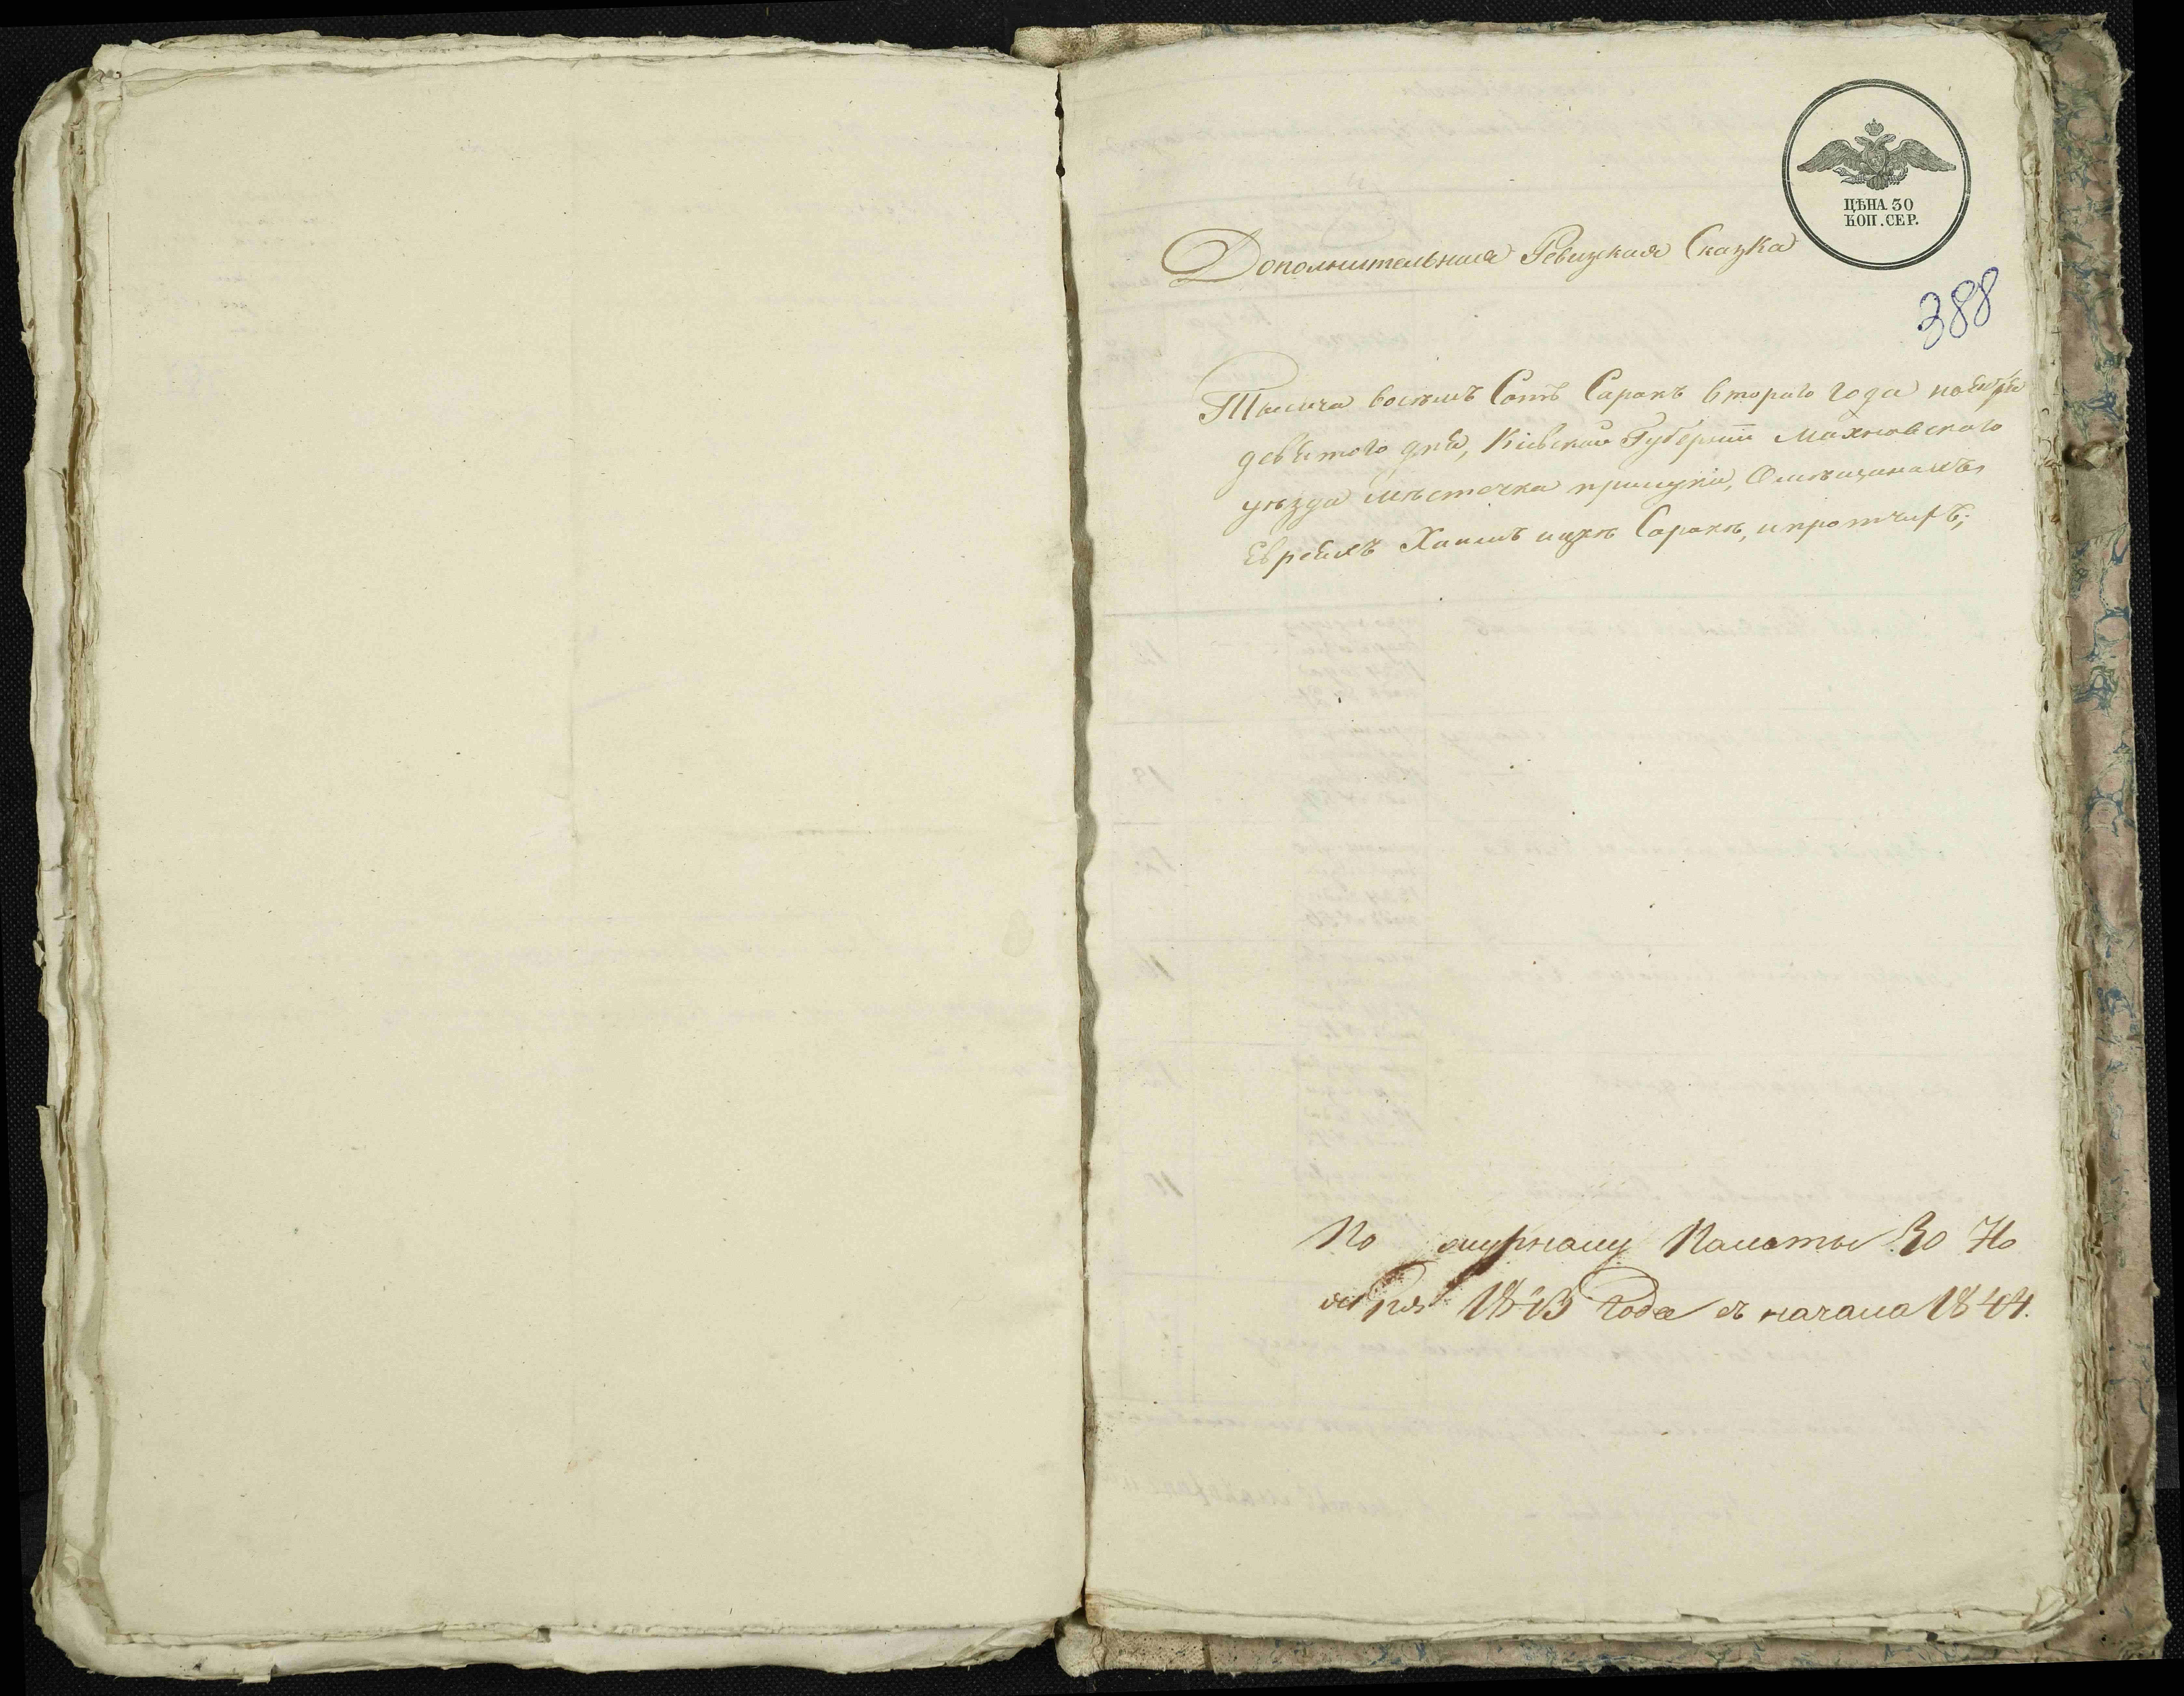 ЦѢНА 30
КОП. СЕР.
Дополнительная Ревизская Сказка
388
Тысяча восемъ Сотъ Сорокъ втораго года ноября
девятого дня, Кіевской Губерніи Махновского
уѣзда мѣстечка прилуки, О мѣщанахъ
Евреяхъ Хаимъ Сорокѣ, и протчихъ;
По журналу Палаты 30 Но
ября 1843 года съ начала 1844.